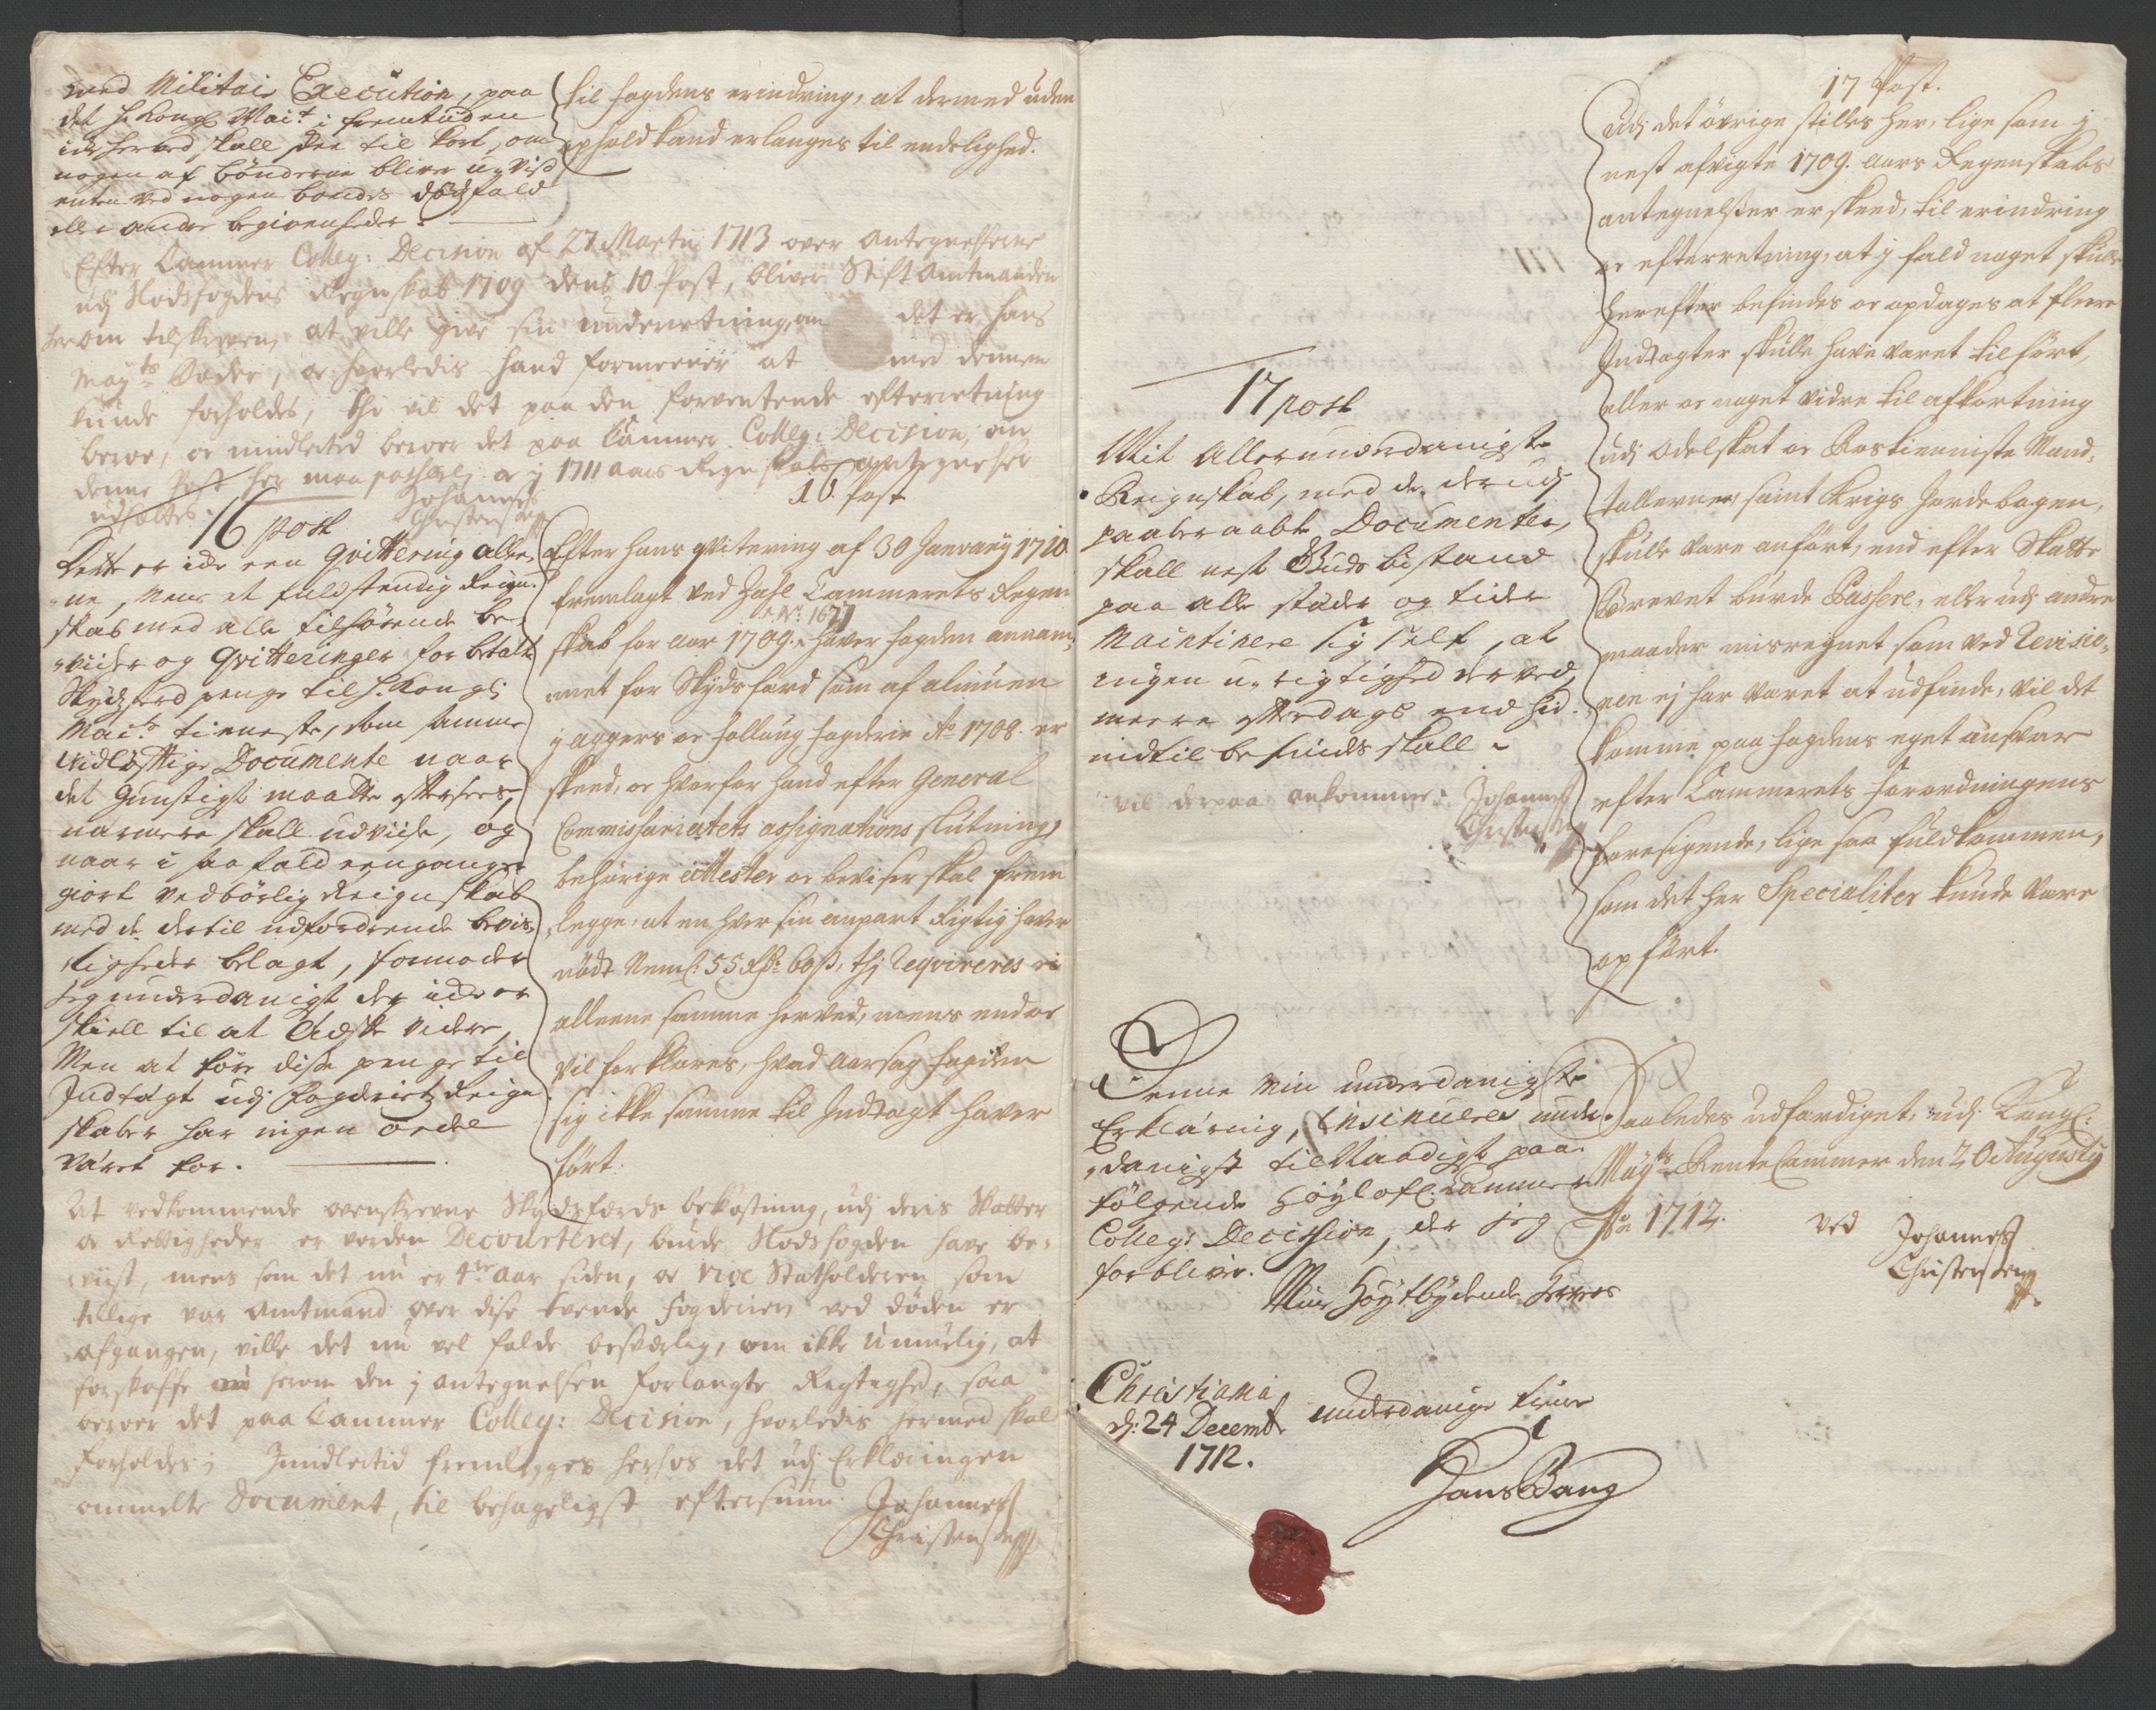 med Militair Execution, paa
det H. Kongl Mai.t i fremtiden
icke herved skall skee til kort, om
nogen af bönderne bliver u-vis
enten ved nogen bondis dödfald
eller andre begivenheder.
til fogdens erindring, at dermed uden
ophold kand erlanges til endelighed.
Efter Cammer Colleg: Decision af 27 Martij 1713 over Antegnelserne
udj Modsfogdens Regnskab 1709 dens 10 Post, bliver Stift Amtmanden
herom tilskreven, at ville give sin underretning, om det er hans
May.ts Bøder, og hvorledis hand formeener at med dennem
kunde forholdes, thi vil det paa den forventende efterretning
beroe, og imidlertid beroer det paa Cammer Colleg: Decision, om
denne Post her maa passere, og j 1711 Aars Regnskabs Antegnelser
udsættes.
Johannes
Christensen
16 post
Dette er icke een Qvittering alle-
ne, Mens et fuldstendig Reign-
skab med alle tilhörende be-
viiser og Qvitteringer for betalt
Skydsferd penge til H. Kongl:
Mai.ts tieneste, som samme
vidlöfftige Documente naar
det Gunstigst maatte efftersees,
nærmere skall udviise, og
naar i saa fald een gang er
giort vedbörlig Reignskab
med de dertil udfordrende bevis-
ligheder belagt, formoder
jeg underdanigst der icke er
skiell til at Æske videre,
Men at före disse penge til
Indtægt udj Fogderiets Reign-
skaber har ingen ordre
været for.
16. Post
Efter hans qvitering af 30 Januarij 1710
fremlagt ved Zahl Cammerets Regen-
No: 1677
skab for aar 1709. haver fogden annam-
met for Skydsfærd som af almuen
j Aggers og Folloug fogderie Ao 1708. er
skeed, og hvorfor hand efter General
Commissariatets assignations slutning,
behörige attester og beviser skal frem
legge, at en hver sin anpart Rigtig haver
nödt Neml: 55 Rdr 60 ß, thj reqvireres ei
alleene samme herved, mens end og
vil forklares, hvad Aarsag fogden
sig ikke samme til Indtægt haver
fört.
At vedkommende ovenskrevne Skydsfærds bekostning, udj deris Skatter
og Rettigheder er vorden Decourteret, burde Modsfogden have be-
viist, mens som det nu er 4de Aar siden, og Vice Statholderen som
tillige var Amtmand over disse tvende Fogderier ved döden er
afgangen, ville det nu vel falde besværlig, om ikke umuelig, at
forskaffe herom den j Antegnelsen forlangte Rigtighed, saa
beroer det paa Cammer Colleg: Decision, hvorledis hermed skal
forholdes; Imidlertid fremlegges herhos det udj Erklæringen
ommelte Document, til behageligst eftersiun.
Johannes
Christensen
17 post
Mit Allerunderdanigste
Reignskab, med de derudj
paaberaabte Documenter,
skall nest Guds bistand
paa alle stæder og tider
Maintinere sig self, at
ingen u-rigtighed derved,
meere efterdags end hid-
indtil befindes skall.
vil derpaa ankomme.
Johannes
Christensen
17 Post.
Udj det övrige stilles her, lige som j
nest afvigte 1709. aars Regenskabs
antegnelser er skeed, til erindring
og efterretning, at j fald noget skulle
herefter befindes og opdages at fleere
Indtægter skulle have været tilfört,
eller og noget vidre til afkortning
udj Odelskat og Rostienniste Mand-
tallerne, samt Krigs Jordebogen,
skulle være anfört, end efter Skatte
Brevet burde Passere, eller udj andre
maader misregnet som ved Revisio-
nen ej har været at udfinde, vil det
komme paa fogdens eget ansvar
efter Cammerets Forordningens
foresigende, lige saa fuldkommen,
som det her Specialiter kunde være
opfört.
Denne min underdanigste
Erklæring, Insinueres under-
danigst til Naadigst paa
fölgende höylofl: Cammer
Colleg: Decission, der jeg
forbliver.
Mine Höytbydende Herrers
Christiania
dj: 24 Decembr
1712.
underdanige tiener
Hans Bang
Saaledes udfærdiget udj Kongl:
May.ts Rente Cammer den 20 Augusty
Ao 1712.
ved
Johannes
Christensen